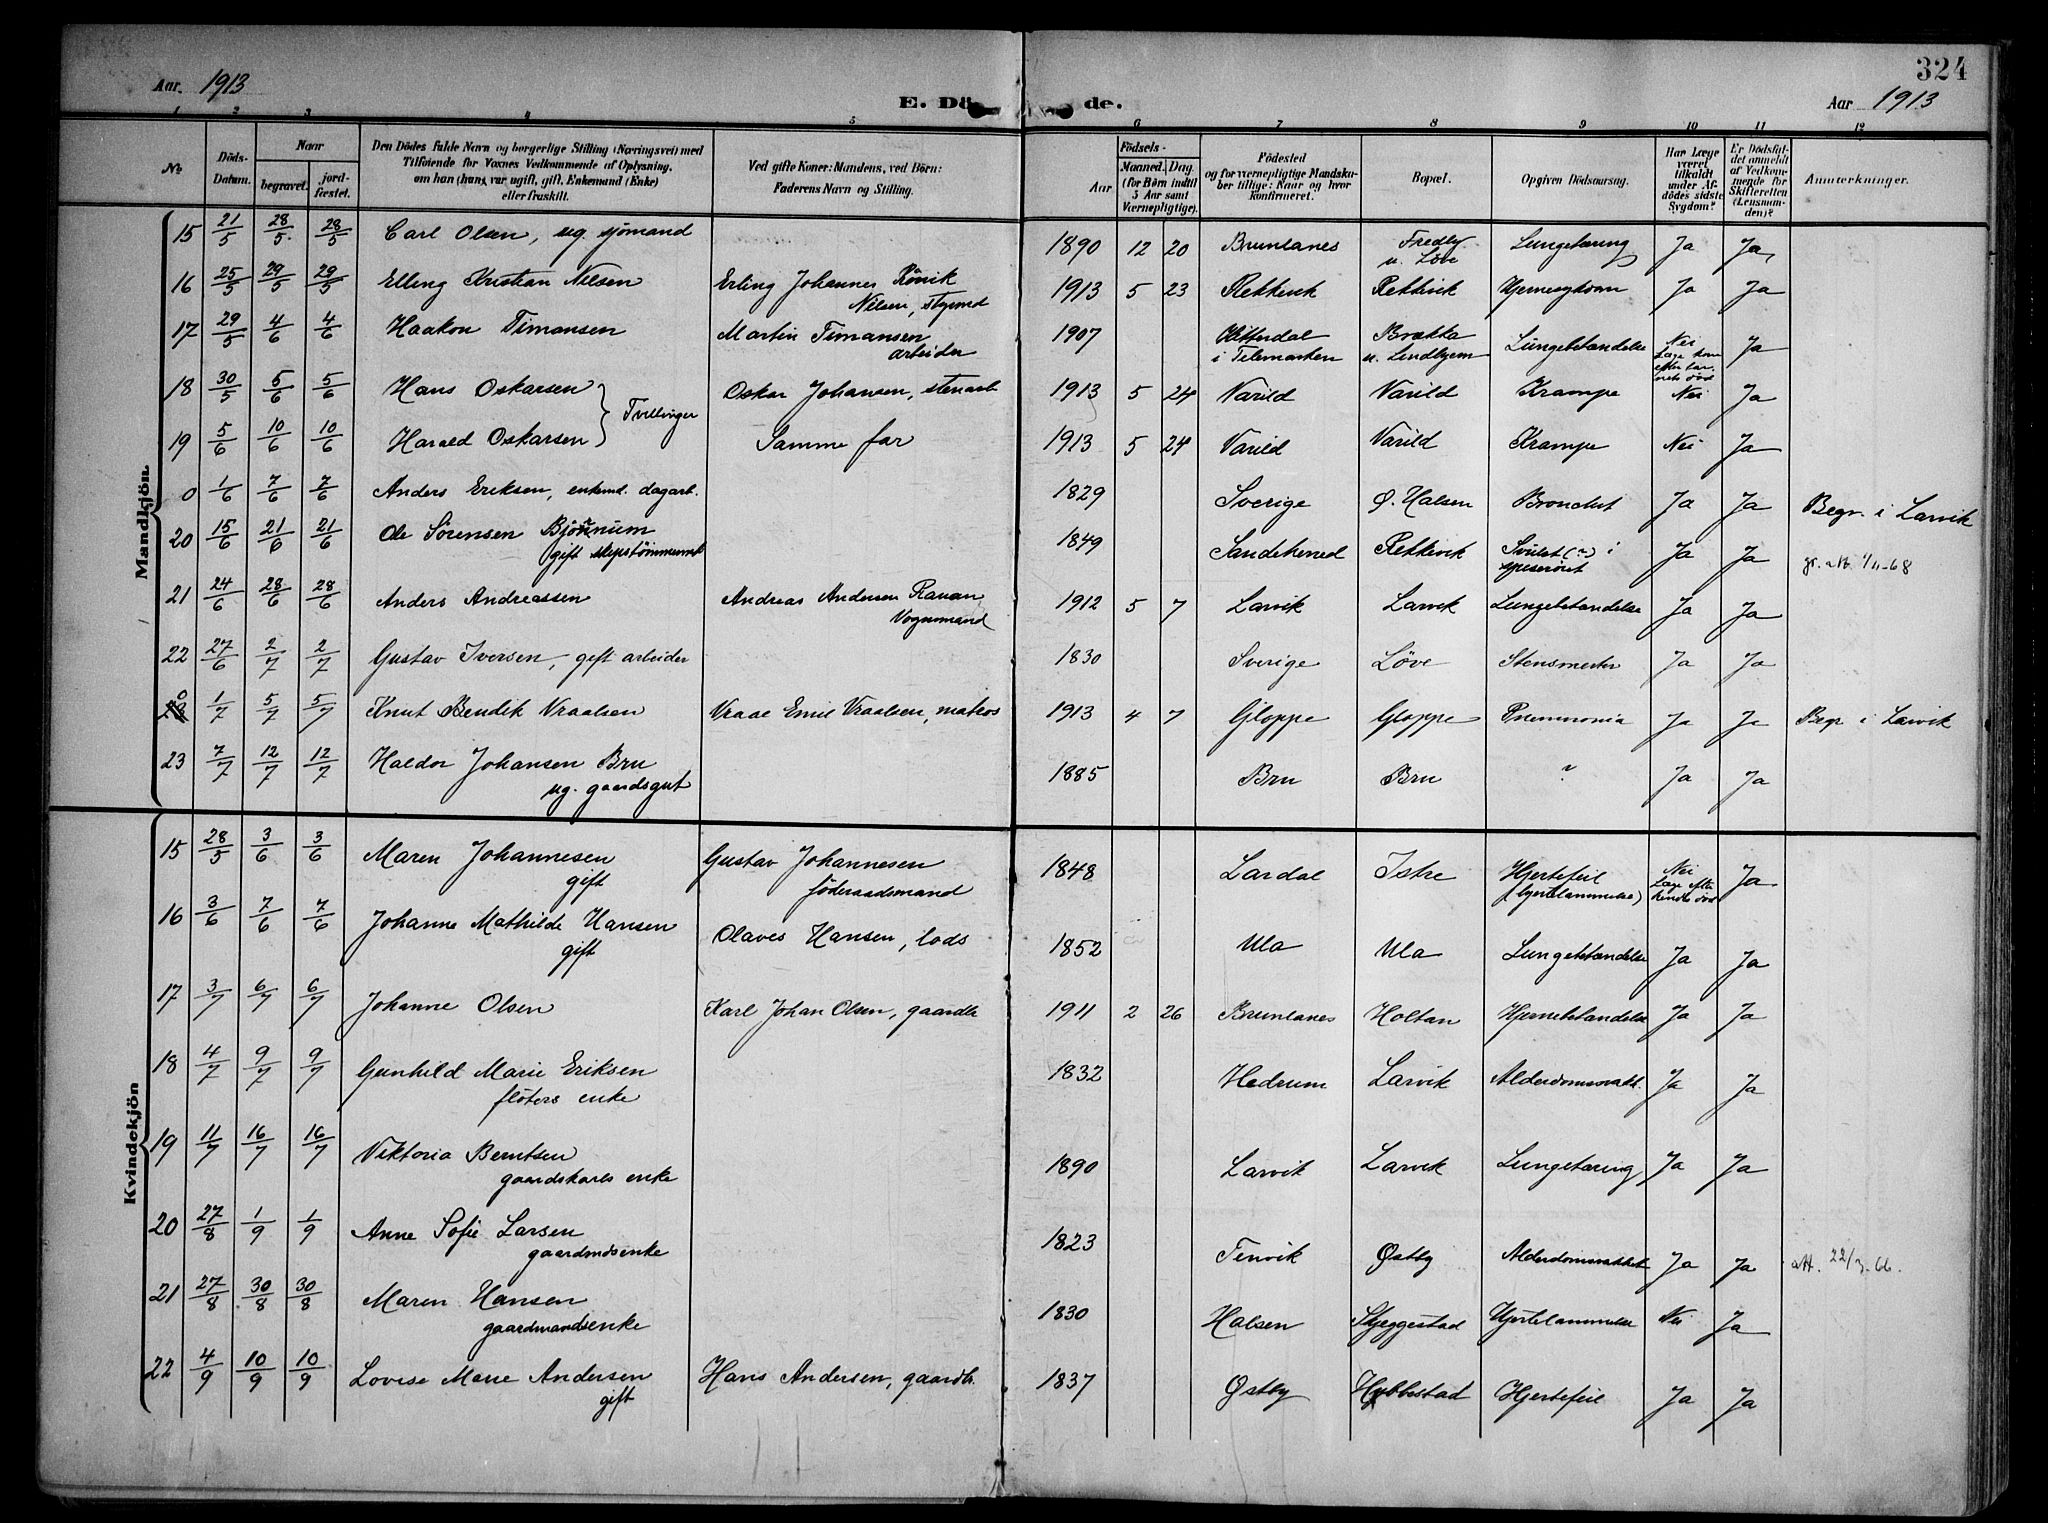 324
Aar 1913
E. Dö de.
Aar 1913
1 2 3 4 5 6 7 8 9 10 11 12
No.
Döds-
Datum.
Naar
begravet.
jord-
fæstet.
Den Dödes fulde Navn og borgerlige Stilling (Næringsvei) med
Tilföiende for Voxnes Vedkommende af Oplysning,
om han (hun) var ugift, gift, Enkemand (Enke)
eller fraskilt.
Ved gifte Koner: Mandens, ved Börn:
Faderens Navn og Stilling.
Födsels-
Aar
Maaned.
Dag.
(for Børn indtil
5 Aar samt
Værnepligtige).
Födested
og for værnepligtige Mandskaber
tillige: Naar og hvor
konfirmeret.
Bopæl.
Opgiven Dödsaarsag.
Har Læge
været
tilkaldt
under Af-
dödes sidste
Sygdom?
Er Dödsfal-
det anmeldt
af Vedkom-
mende for
Skifteretten
(Lensman-
den)?
Anmærkninger.
Mandkjön
15 21/5 28/5 28/5 Carl Olsen, ug. sjömand 1890 12 20 Brunlanes Fredly Lungetæring Ja Ja
u. Löve
16 25/5 29/5 29/5 Elling Kristian Nilsen Erling Johannes Rönvik 1913 5 23 Rekkevik Rekkevik Hjernesygdom Ja Ja
Nilsen, styrmd
17 29/5 4/6 4/6 Haakon Timansen Martin Timansen 1907 Hitterdal Brække Lungebetændelse Nei Ja
arbeider i Telemarken u. Lindhjem Læge kom
efter bar-
nets död
18 30/5 5/6 5/6 Hans Oskarsen Oskar Johansen, stenarb 1913 5 24 Varild Varild Krampe Nei Ja
Tvillinger
19 5/6 10/6 10/6 Harald Oskarsen Samme far 1913 5 24 Varild Varild Krampe Nei Ja
0 1/6 7/6 7/6 Anders Eriksen, enkemd. dagarb. 1829 Sverige Ø. Halsen Bronchit Ja Ja Begr. i Larvik
20 15/6 21/6 21/6 Ole Sörensen Bjönnum 1849 Sandeherred Rekkevik Svulst (~) i Ja Ja
gift skipstömmermd spiseröret
21 24/6 28/6 28/6 Anders Andreassen Andreas Andersen Ravan 1912 5 7 Larvik Larvik Lungebetændelse Ja Ja
Vognmand
22 27/6 2/7 2/7 Gustav Iversen, gift arbeider 1830 Sverige Löve Stensmerter Ja Ja
0 1/7 5/7 5/7 Knut Bendik Vraalsen Vraal Emil Vraalsen, matros 1913 4 7 Gloppe Gloppe Pneumonia Ja Ja Begr i Larvik
23 7/7 12/7 12/7 Haldor Johansen Bru 1885 Bru Bru ~ Ja Ja
ug. gaardsgut
Kvindekjön
15 28/5 3/6 3/6 Maren Johannesen Gustav Johannesen 1848 Lardal Istre Hjertefeil Nei Ja
gift föderaadsmand (hjertelammelse) Læge efter
hendes död
16 3/6 7/6 7/6 Johanne Mathilde Hansen Olaves Hansen, lods 1852 Ula Ula Lungebetændelse Ja Ja
gift
17 3/7 6/7 6/7 Johanne Olsen Karl Johan Olsen, gaardbr 1911 2 26 Brunlanes Holtan Hjernebetændelse Ja Ja
18 4/7 9/7 9/7 Gunhild Marie Eriksen 1832 Hedrum Larvik Alderdomssvakh. Ja Ja
flöters enke
19 11/7 16/7 16/7 Viktoria Berntsen 1890 Larvik Larvik Lungetæring Ja Ja
gaardskarls enke
20 27/8 1/9 1/9 Anne Sofie Larsen 1823 Tenvik Østby Alderdomssvakhet Ja Ja att. 22/3-66.
gaardmdsenke
21 27/8 30/8 30/8 Maren Hansen 1830 Halsen Skjeggestad Hjertelammelse Nei Ja
gaardmandsenke
22 4/9 10/9 10/9 Lovise Marie Andersen Hans Andersen, gaardbr. 1837 Østby Hybbestad Hjertefeil Ja Ja
gift